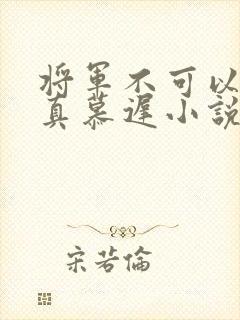 將軍不可以
真慕遲小說
宋若倫